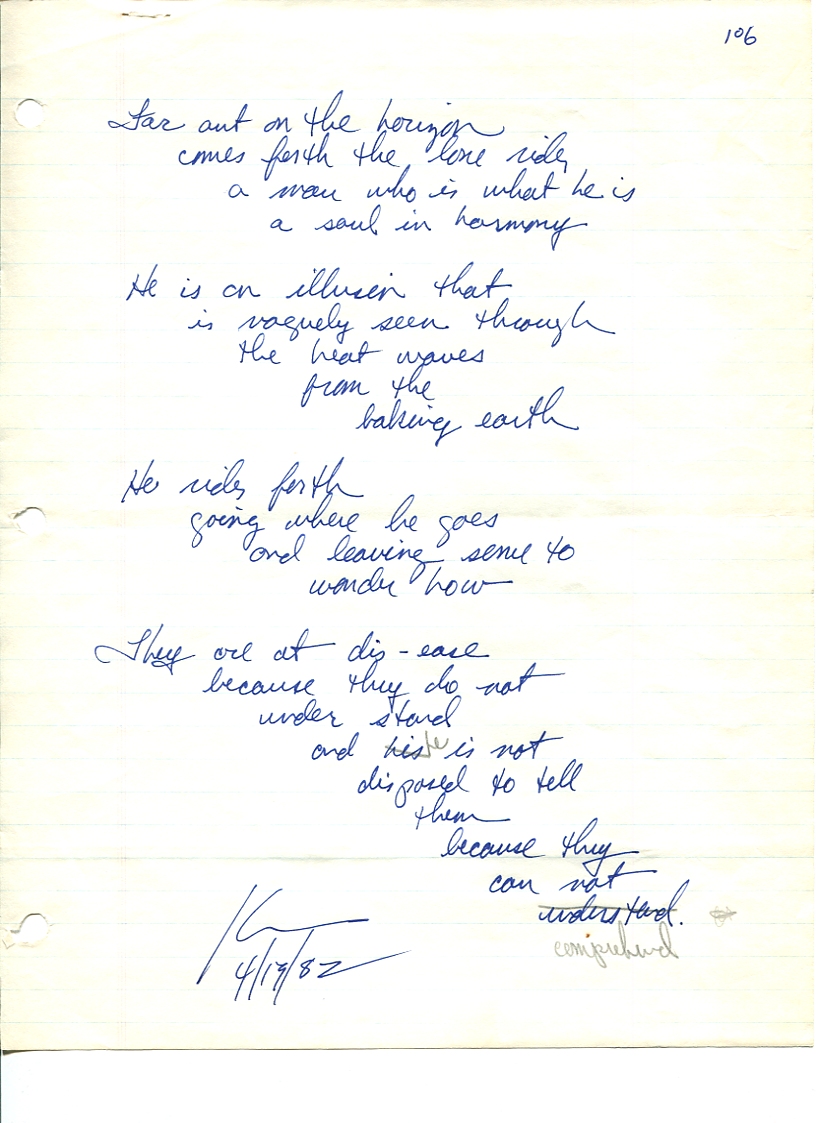 106
Far out on the horizon
comes forth the lone rider
a man who is what he is
a soul in harmony
He is an illusion that
is vaguely seen through
the heat waves
from the
baking earth
He rides forth
going where he goes
and leaving some to
wonder how
They are at dis-ease
because they do not
under stand
and his he is not
disposed to tell
them
because they
can not
understand.
comprehend
4/19/82